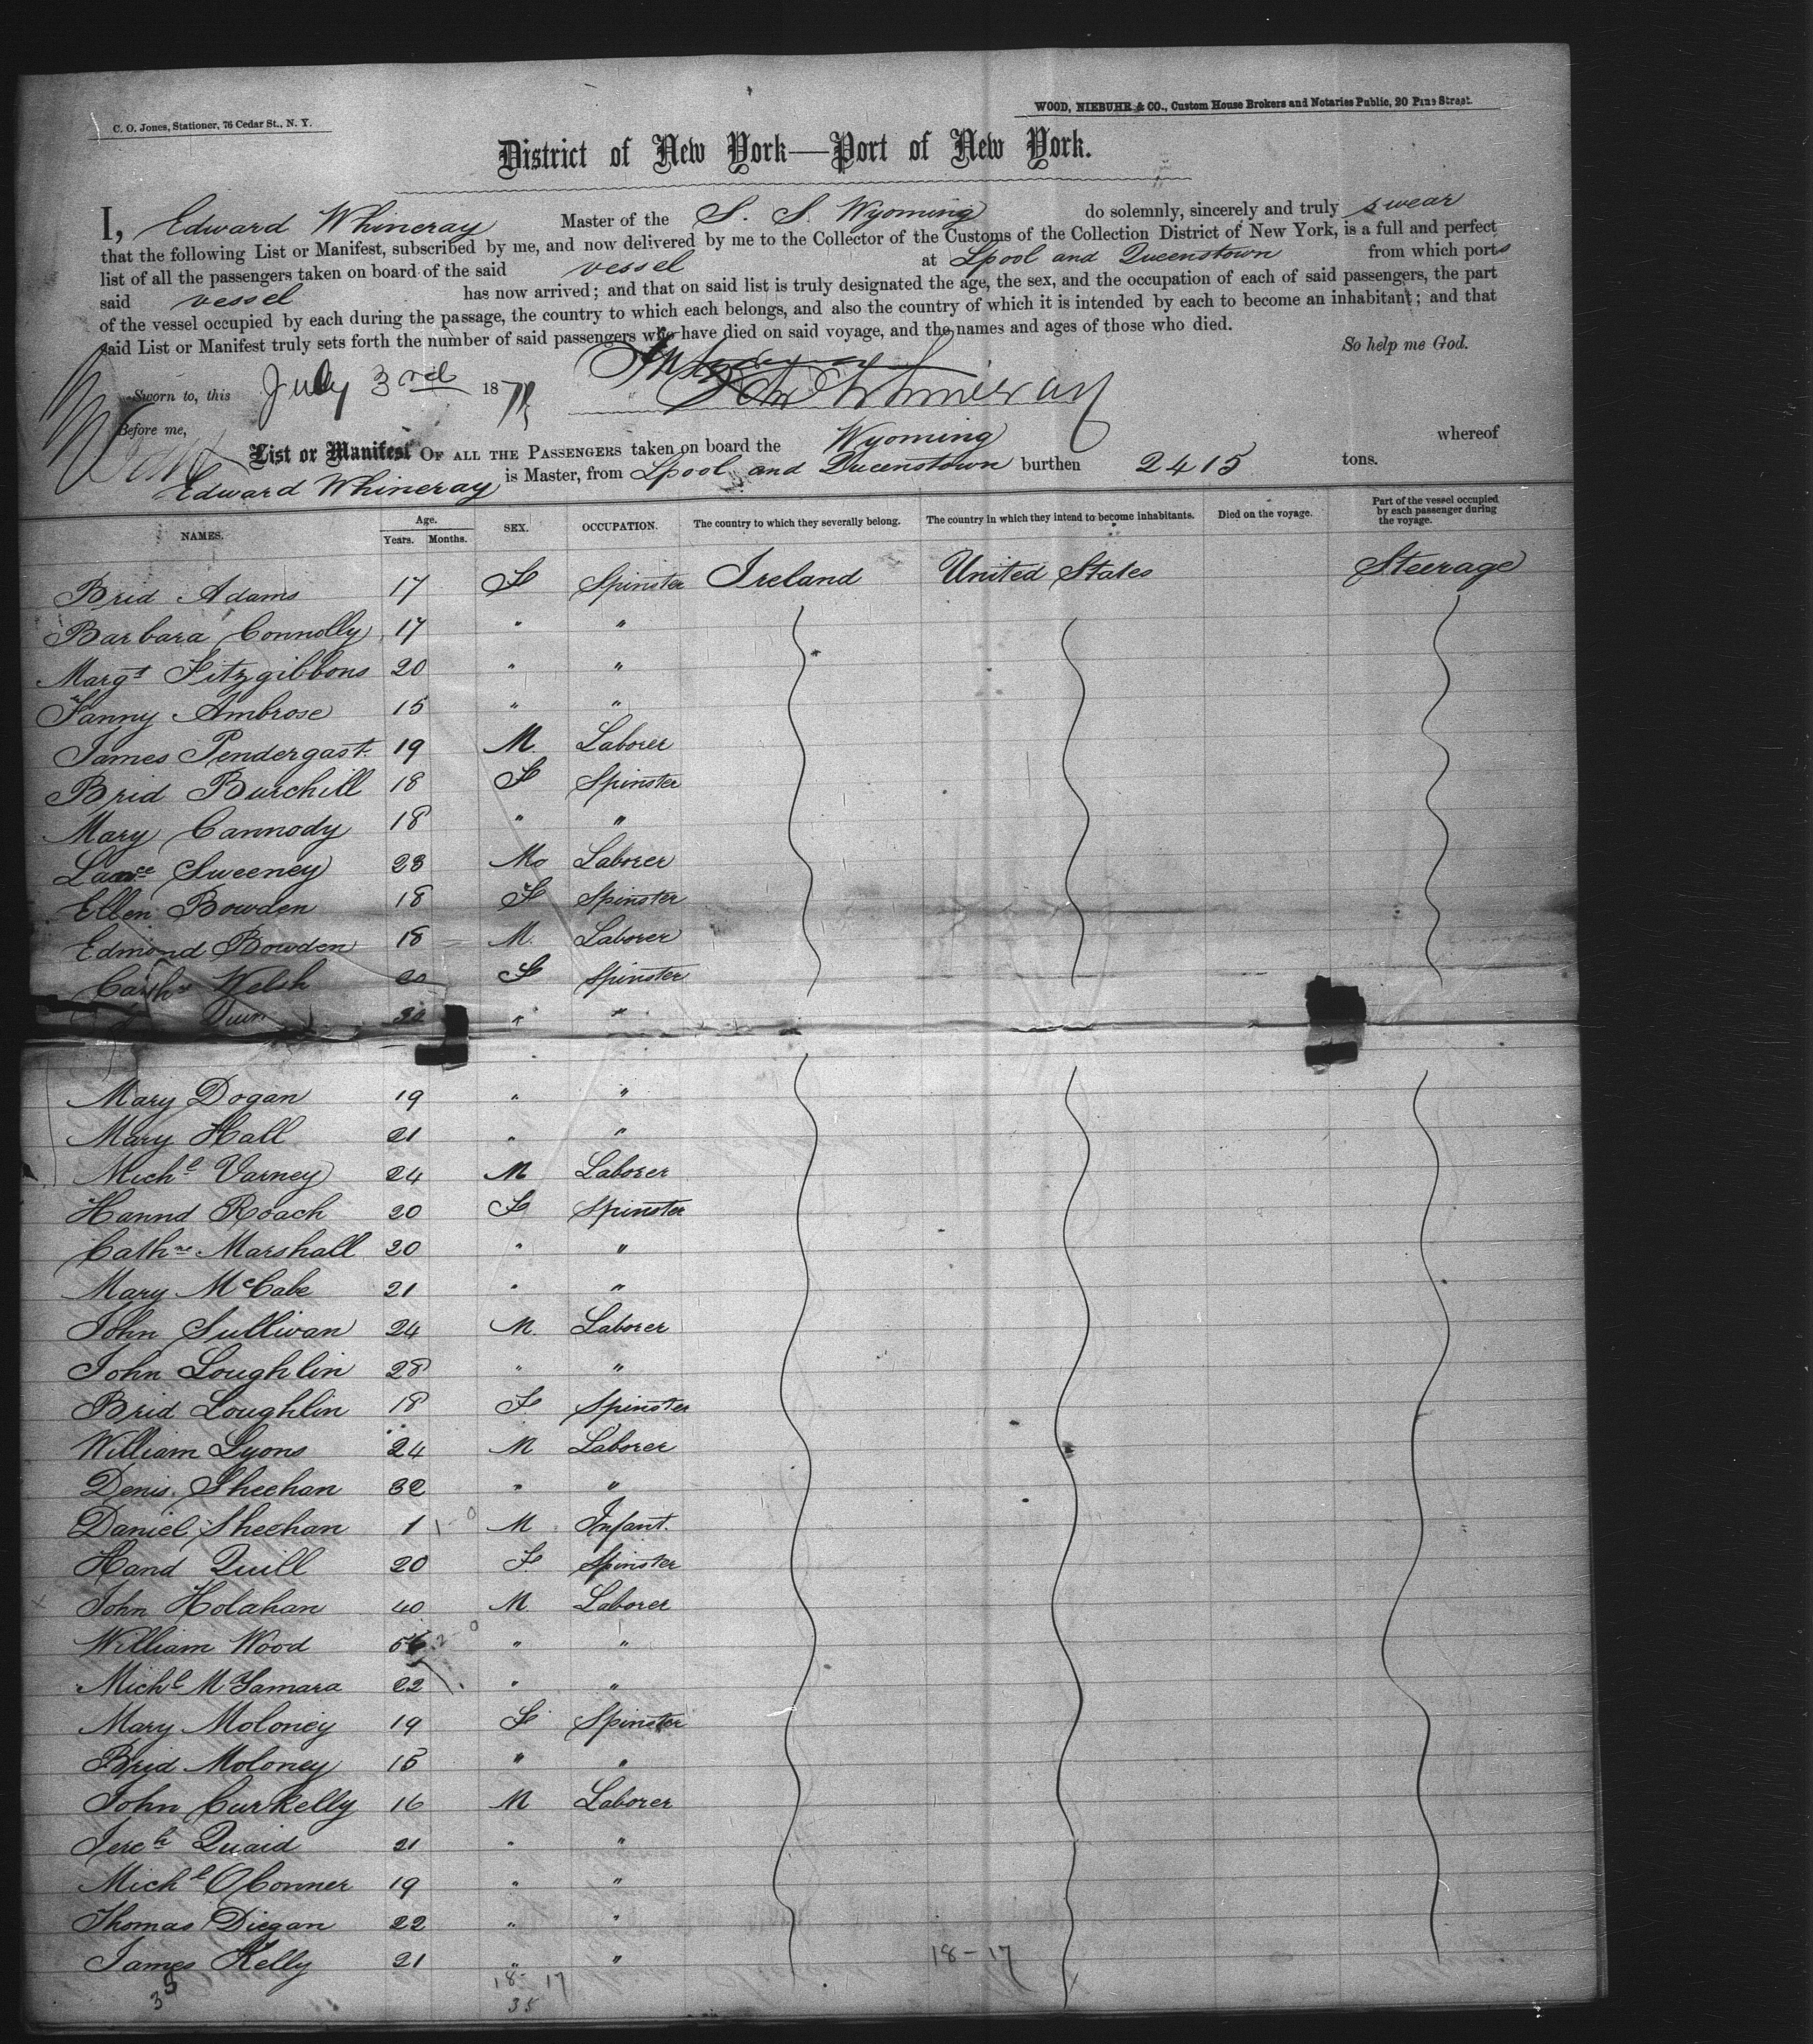 C. O. Jones, Stationer, 76 Cedar St., N. Y.
WOOD, NIEBUHR & CO., Custom House Brokers and Notaries Public, 20 Pine Street.
District of New York—Port of New York.
I, Edward Whineray Master of the S. S. Wyoming do solemnly, sincerely and truly swear
that the following List or Manifest, subscribed by me, and now delivered by me to the Collector of the Customs of the Collection District of New York, is a full and perfect
list of all the passengers taken on board of the said vessel at Lpool and Queenstown from which ports
said vessel has now arrived; and that on said list is truly designated the age, the sex, and the occupation of each of said passengers, the part
of the vessel occupied by each during the passage, the country to which each belongs, and also the country of which it is intended by each to become an inhabitant; and that
said List or Manifest truly sets forth the number of said passengers who have died on said voyage, and the names and ages of those who died.
So help me God.
Sworn to, this July 3rd 187
Whineray
Before me,
List or Manifest OF ALL THE PASSENGERS taken on board the Wyoming whereof
Edward Whineray is Master, from Lpool and Queenstown burthen 2415 tons.
NAMES. Age. Years. Months. SEX. OCCUPATION. The country to which they severally belong. The country in which they intend to become inhabitants. Died on the voyage. Part of the vessel occupied by each passenger during the voyage.
Brid Adams 17 F Spinster Ireland United States Steerage
Barbara Connolly 17 " "
Margt Fitzgibbons 20 " "
Fanny Ambrose 15 " "
James Pendergast 19 M. Laborer
Brid Burchill 18 F Spinster
Mary Cannody 18 " "
Laurce Sweeney 23 M Laborer
Ellen Bowden 18 F Spinster
Edmond Bowden 18 M. Laborer
Cathe Welsh F Spinster
" "
Mary Dogan 19 " "
Mary Hall 21 " "
Michl Varney 24 M Laborer
Hannd Roach 20 F Spinster
Cathne Marshall 20 " "
Mary McCabe 21 " "
John Sullivan 24 M. Laborer
John Loughlin 28 " "
Brid Loughlin 18 F Spinster
William Lyons 24 M Laborer
Denis Sheehan 32 " "
Daniel Sheehan 1 M Infant.
Hand Quill 20 F. Spinster
John Holahan 40 M Laborer
William Wood " "
Michl McNamara 22 " "
Mary Moloney 19 F Spinster
Brid Moloney 15 " "
John Curkelly 16 M Laborer
Jereh Quaid 21 " "
Michl O'Conner 19 " "
Thomas Diegan 22 " "
James Kelly 21 " "
18-17
35
18-17
35